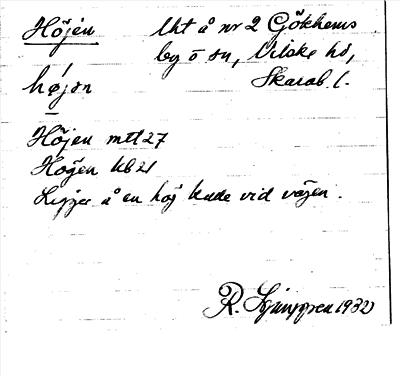 Höjen Uht å nr 2 Gökhems
by o sn, Vilske hd,
Skarab. l.
højən
Höjen mtl 27
Högen kb 21
Ligger å en höj kude vid vägen.
R. Ljunggren 1932